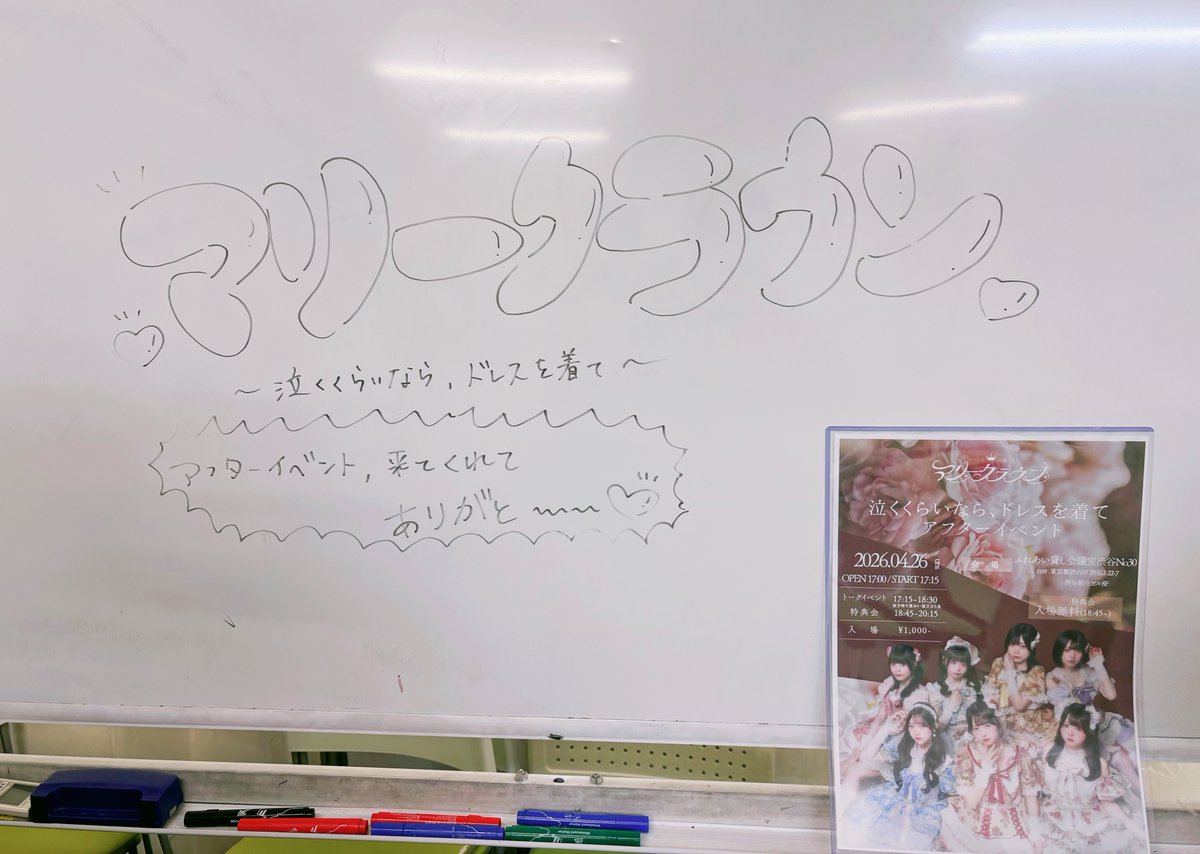 アリークラウン
～泣くくらいなら、ドレスを着て～
アフターイベント,来てくれて
ありがと〜〜
アリークラウン
泣くくらいなら、ドレスを着て
アフターイベント
2026.04.26
OPEN 17:00/START 17:15
会場
ふれあい貸し会議室渋谷No30
住所:東京都渋谷区渋谷2-22-7
渋谷新生ビル8F
トークイベント 17:15~18:30
特典会 18:45~20:15
入場 ¥1,000-
特典会
入場無料(18:45~)